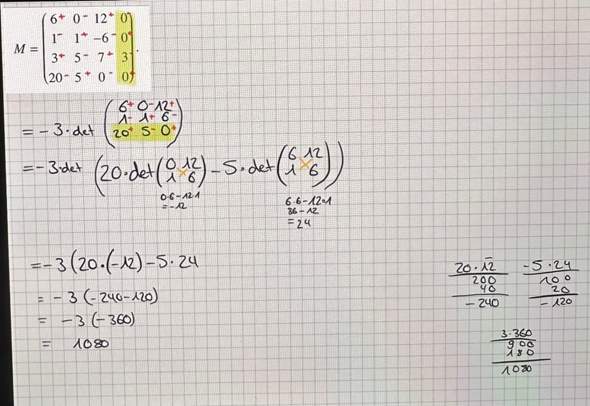 M = ( 6+ 0- 12+ 0-
1- 1+ -6- 0+
3+ 5- 7+ 3-
20- 5+ 0- 0+ ).
= -3·det ( 6+ 0- 12+
1- 1+ 6-
20+ 5- 0+ )
= -3·det ( 20·det ( 0 12
1 6 ) - 5·det ( 6 12
1 6 ) )
0·6-12·1
= -12
6·6-12·1
36-12
= 24
= -3 (20·(-12) - 5·24
= -3 (-240-120)
= -3 (-360)
= 1080
20·12
200
40
-240
-5·24
100
20
-120
3·360
900
180
1080